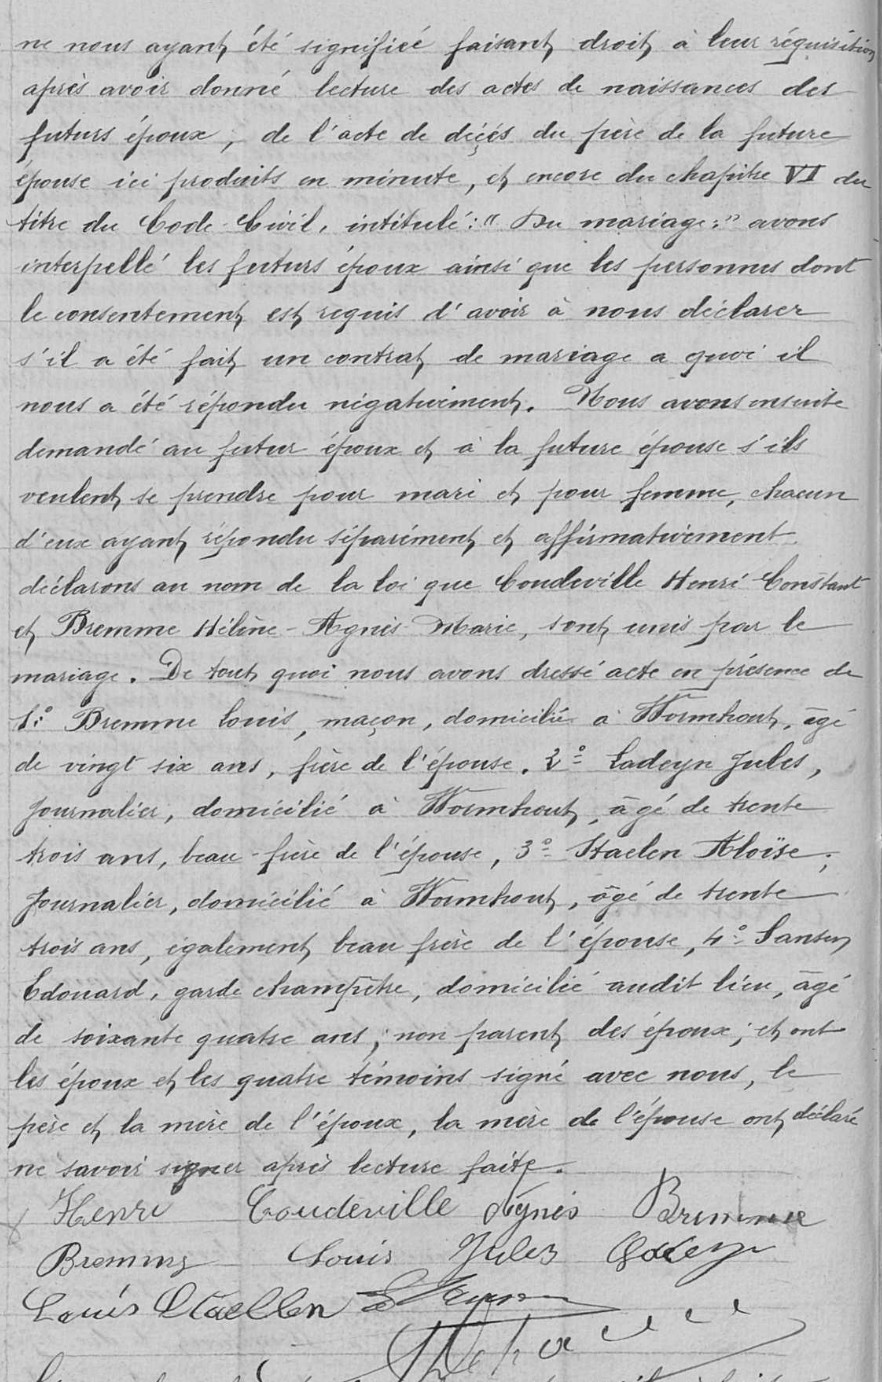 ne nous ayant été signifiée faisant droit à leur réquisition
après avoir donné lecture des actes de naissances des
futurs époux, de l'acte de décés du père de la future
épouse ici produits en minute, et encore du chapitre VI du
titre du Code-Civil, intitulé: "Du mariage;" avons
interpellé les futurs époux ainsi que les personnes dont
le consentement est requis d'avoir à nous déclarer
s'il a été fait un contrat de mariage a quoi il
nous a été répondu négativement. Nous avons ensuite
demandé au futur époux et à la future épouse s'ils
veulent se prendre pour mari et pour femme, chacun
d'eux ayant répondu séparément et affirmativement
déclarons au nom de la loi que Coudeville Henri Constant
et Bremme Hélène-Agnès Marie, sont unis par le
mariage. De tout quoi nous avons dressé acte en présence de
1.° Bremme Louis, maçon, domicilié à Wormhout, âgé
de vingt six ans, frère de l'épouse. 2° Ladeyn Jules,
Journalier, domicilié à Wormhout, âgé de trente
trois ans, beau-frère de l'épouse, 3° Staelen Aloïse,
Journalier, domicilié à Wormhout, âgé de trente
trois ans, également beau frère de l'épouse, 4°
Edouard, garde champêtre, domicilié audit lieu, âgé
de soixante quatre ans; non parent des époux; et ont
les époux et les quatre témoins signé avec nous, le
père et la mère de l'époux, la mère de l'épouse ont déclaré
ne savoir signer après lecture faite.
Henri Coudeville Agnès Bremme
Bremme Louis Jules
Louis Staellen